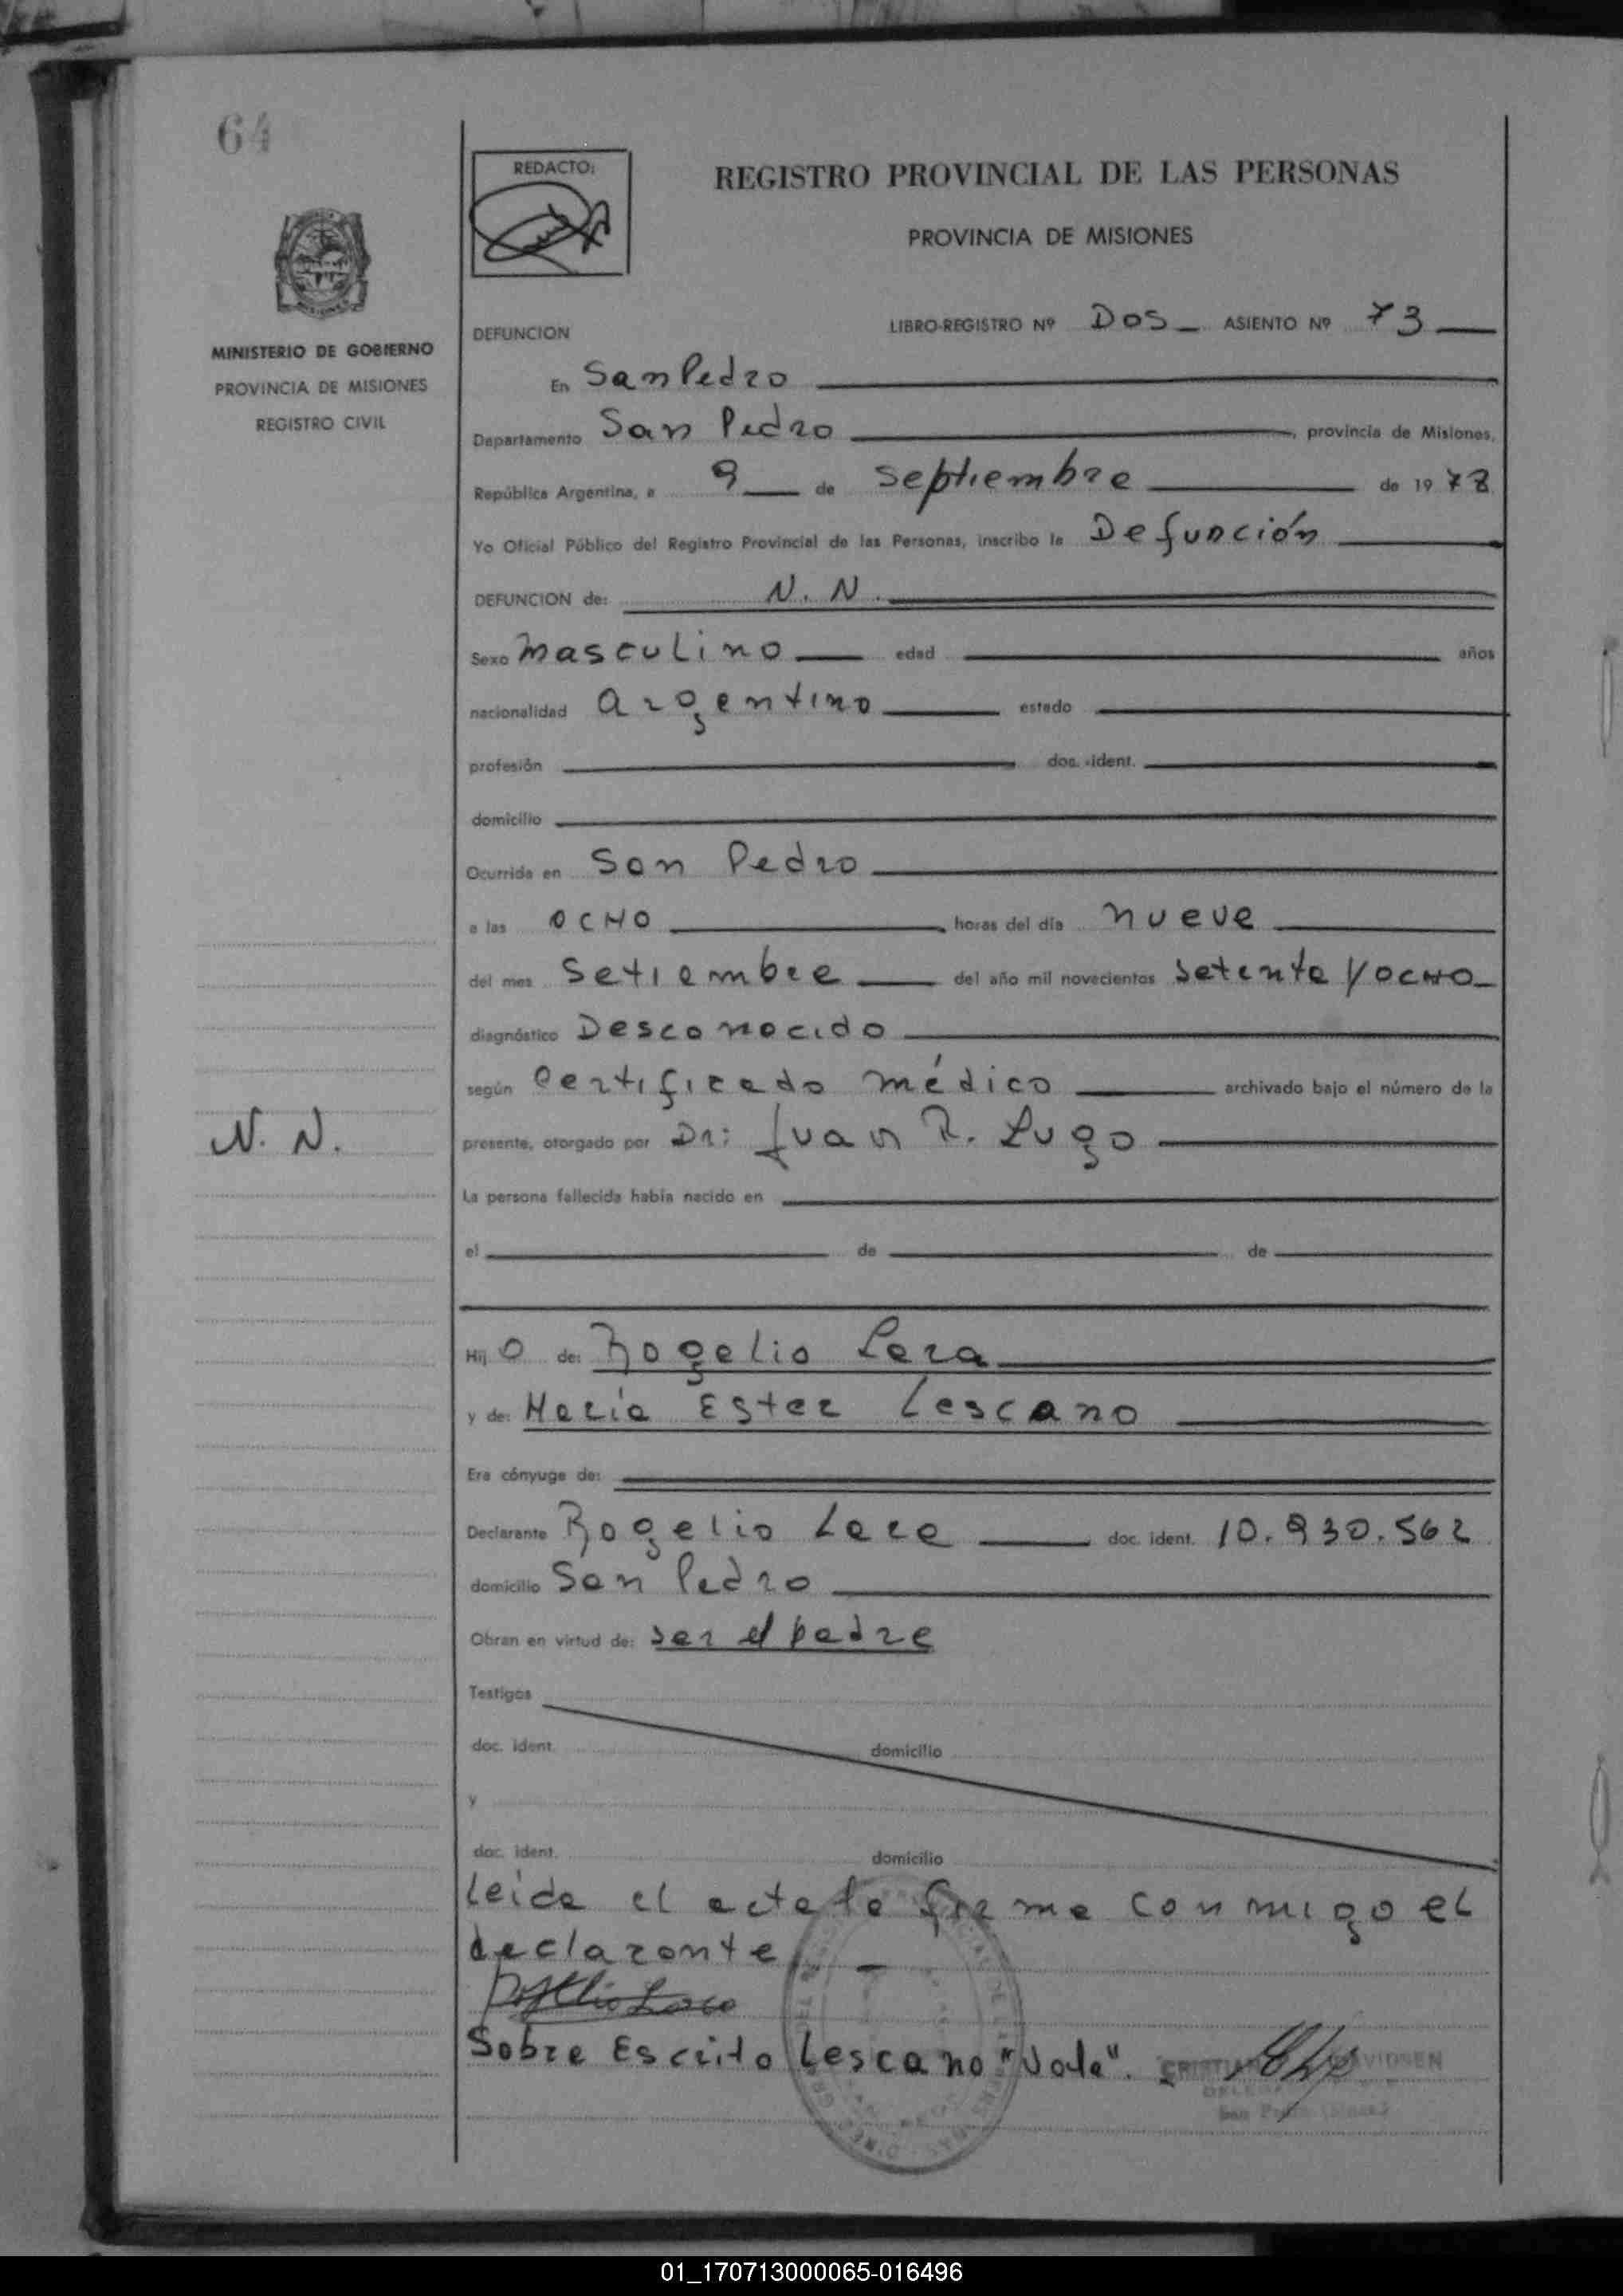 64
REDACTO:
REGISTRO PROVINCIAL DE LAS PERSONAS
PROVINCIA DE MISIONES
MINISTERIO DE GOBIERNO
PROVINCIA DE MISIONES
REGISTRO CIVIL
DEFUNCION LIBRO-REGISTRO Nº Dos ASIENTO Nº 73
En San Pedro
Departamento San Pedro, provincia de Misiones,
República Argentina, a 9 de septiembre de 1978
Yo Oficial Público del Registro Provincial de las Personas, inscribo la Defunción
DEFUNCION de: N. N.
Sexo masculino edad años
nacionalidad argentino estado
profesión doc. ident.
domicilio
Ocurrida en San Pedro
a las OCHO horas del día nueve
del mes Setiembre del año mil novecientos setenta y OCHO
diagnóstico Desconocido
según Certificado médico archivado bajo el número de la
N. N.
presente, otorgado por Dr: Juan R. Lugo
La persona fallecida había nacido en
el de de
Hijo de: Rogelio Lara
y de: María Ester Lescano
Era cónyuge de:
Declarante Rogelio Lara doc. ident. 10.930.562
domicilio San Pedro
Obran en virtud de: ser el padre
Testigos
doc. ident. domicilio
y
doc. ident. domicilio
Leida el acta la firma conmigo el
declarante
Sobre Escrito Lescano "Vale".
01_170713000065-016496